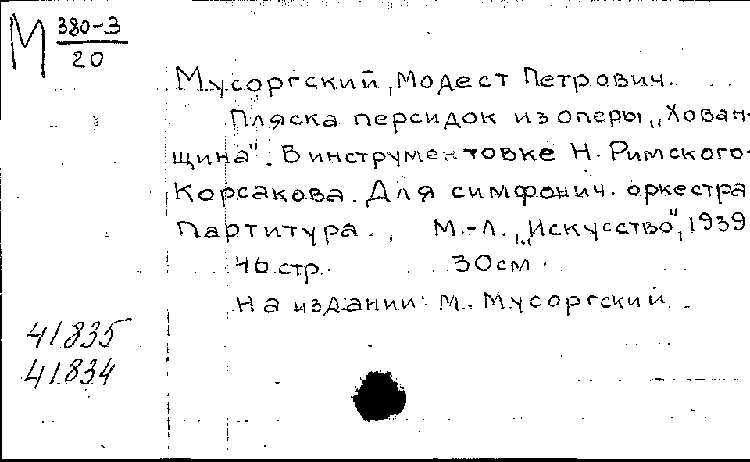 М 380-3
20
Мусоргский, Модест Петрович.
Пляска персидок из оперы „Хован-
щина". В инструментовке Н. Римского-
Корсакова. Для симфонич. оркестра
Партитура. , М.-Л. „Искусство", 1939
46 стр. 30 см.
На издании: М. Мусоргский
41835
41834